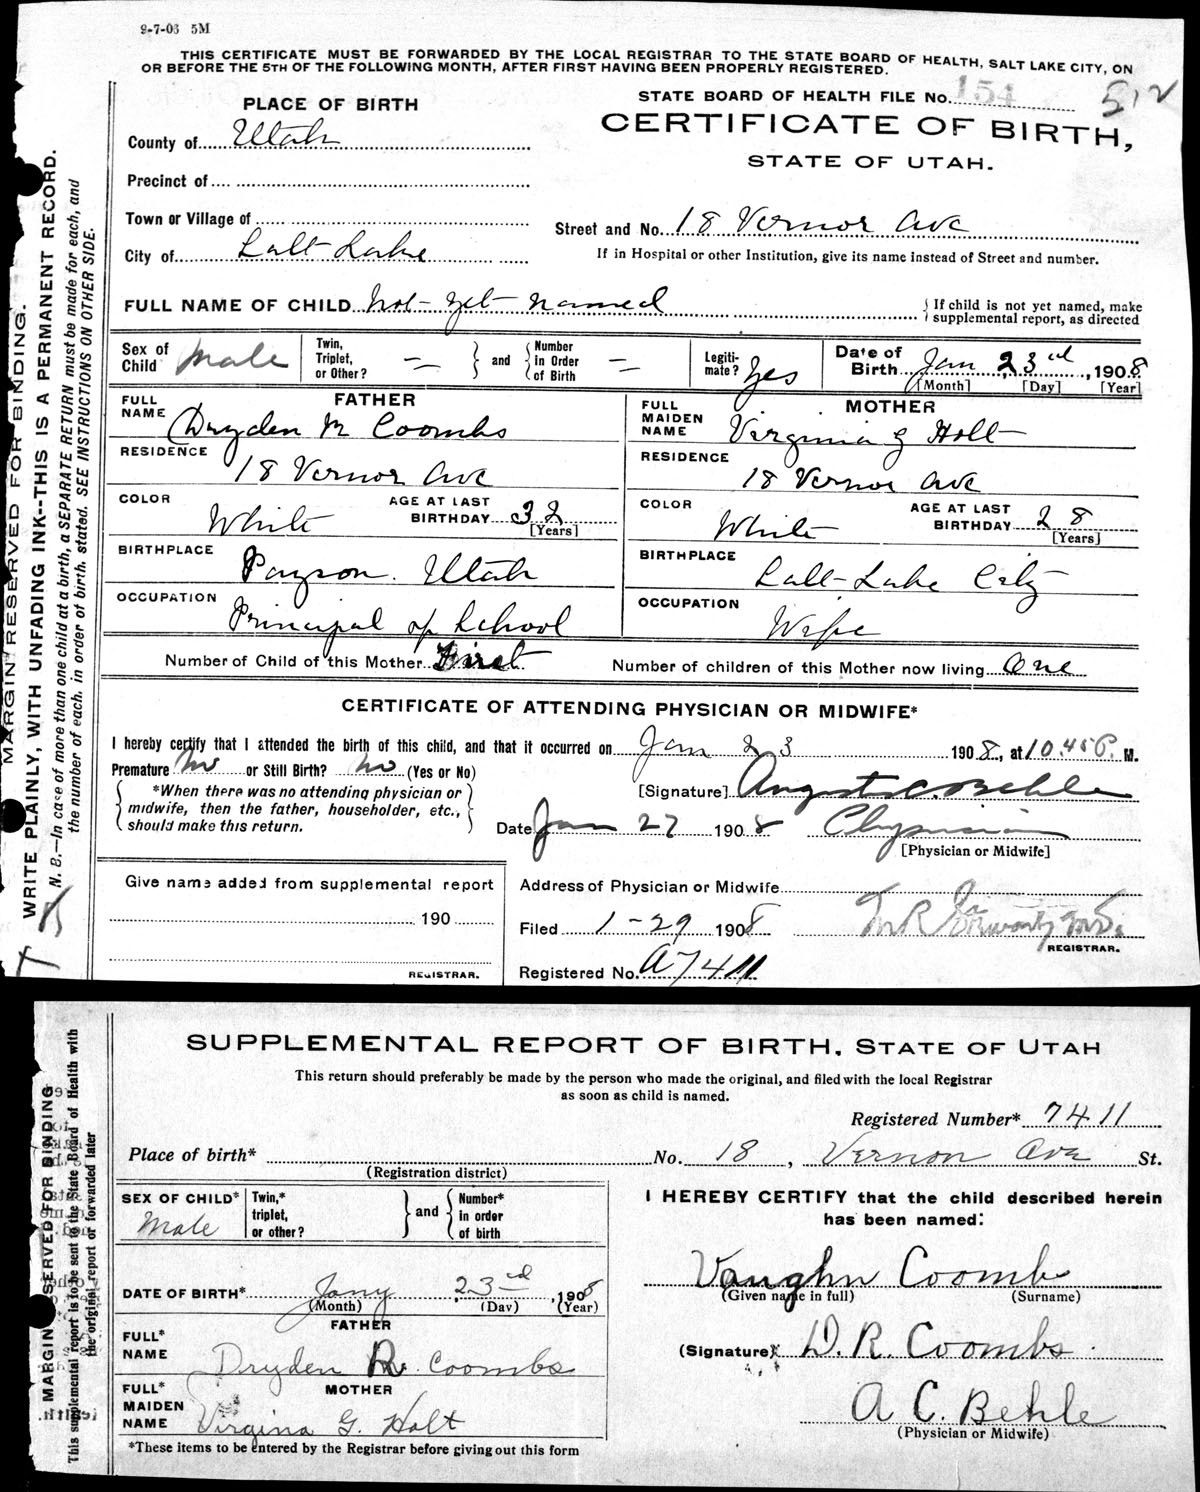 9-7-03 5M
THIS CERTIFICATE MUST BE FORWARDED BY THE LOCAL REGISTRAR TO THE STATE BOARD OF HEALTH, SALT LAKE CITY, ON
OR BEFORE THE 5TH OF THE FOLLOWING MONTH, AFTER FIRST HAVING BEEN PROPERLY REGISTERED.
STATE BOARD OF HEALTH FILE No. 154 512
PLACE OF BIRTH
CERTIFICATE OF BIRTH,
STATE OF UTAH.
County of Utah
Precinct of
Town or Village of
Street and No. 18 Vernor Ave
City of Salt Lake
If in Hospital or other Institution, give its name instead of Street and number.
FULL NAME OF CHILD Not yet named
{If child is not yet named, make
supplemental report, as directed
Sex of Child Male
Twin, Triplet, or Other? —
and
Number in Order of Birth —
Legiti-mate? Yes
Date of Birth Jan 23rd, 1908
[Month] [Day] [Year]
FATHER
FULL NAME Dryden M Coombs
RESIDENCE
18 Vernor Ave
COLOR White
AGE AT LAST BIRTHDAY 32
[Years]
BIRTHPLACE Payson. Utah
OCCUPATION Principal of School
MOTHER
FULL MAIDEN NAME Virginia G Holt
RESIDENCE
18 Vernor Ave
COLOR White
AGE AT LAST BIRTHDAY 28
[Years]
BIRTHPLACE
Salt Lake City
OCCUPATION
Wife
Number of Child of this Mother First
Number of children of this Mother now living One
CERTIFICATE OF ATTENDING PHYSICIAN OR MIDWIFE*
I hereby certify that I attended the birth of this child, and that it occurred on Jan 23 1908, at 10.45 P. M.
Premature No or Still Birth? No (Yes or No)
*When there was no attending physician or
midwife, then the father, householder, etc.,
should make this return.
[Signature] August C. Behle
Date Jan 27 1908 Physician
[Physician or Midwife]
Give name added from supplemental report
190
REGISTRAR.
Address of Physician or Midwife
Filed 1-29 1908
REGISTRAR.
Registered No. A7411
MARGIN RESERVED FOR BINDING.
WRITE PLAINLY, WITH UNFADING INK--THIS IS A PERMANENT RECORD.
N. B.—In case of more than one child at a birth, a SEPARATE RETURN must be made for each, and
the number of each, in order of birth, stated. SEE INSTRUCTIONS ON OTHER SIDE.
SUPPLEMENTAL REPORT OF BIRTH, STATE OF UTAH
This return should preferably be made by the person who made the original, and filed with the local Registrar
as soon as child is named.
Registered Number* 7411
Place of birth* No. 18, Vernon Ave St.
(Registration district)
SEX OF CHILD* Male
Twin,* triplet, or other?
and
Number* in order of birth
DATE OF BIRTH* Jany 23rd, 1908
(Month) (Day) (Year)
FATHER
FULL* NAME Dryden R. Coombs
MOTHER
FULL* MAIDEN NAME Virgina G. Holt
*These items to be entered by the Registrar before giving out this form
I HEREBY CERTIFY that the child described herein
has been named:
Vaughn Coombs
(Given name in full) (Surname)
(Signature) D. R. Coombs
A C. Behle
(Physician or Midwife)
MARGIN RESERVED FOR BINDING
This supplemental report is to be sent to the State Board of Health with
the original report or forwarded later